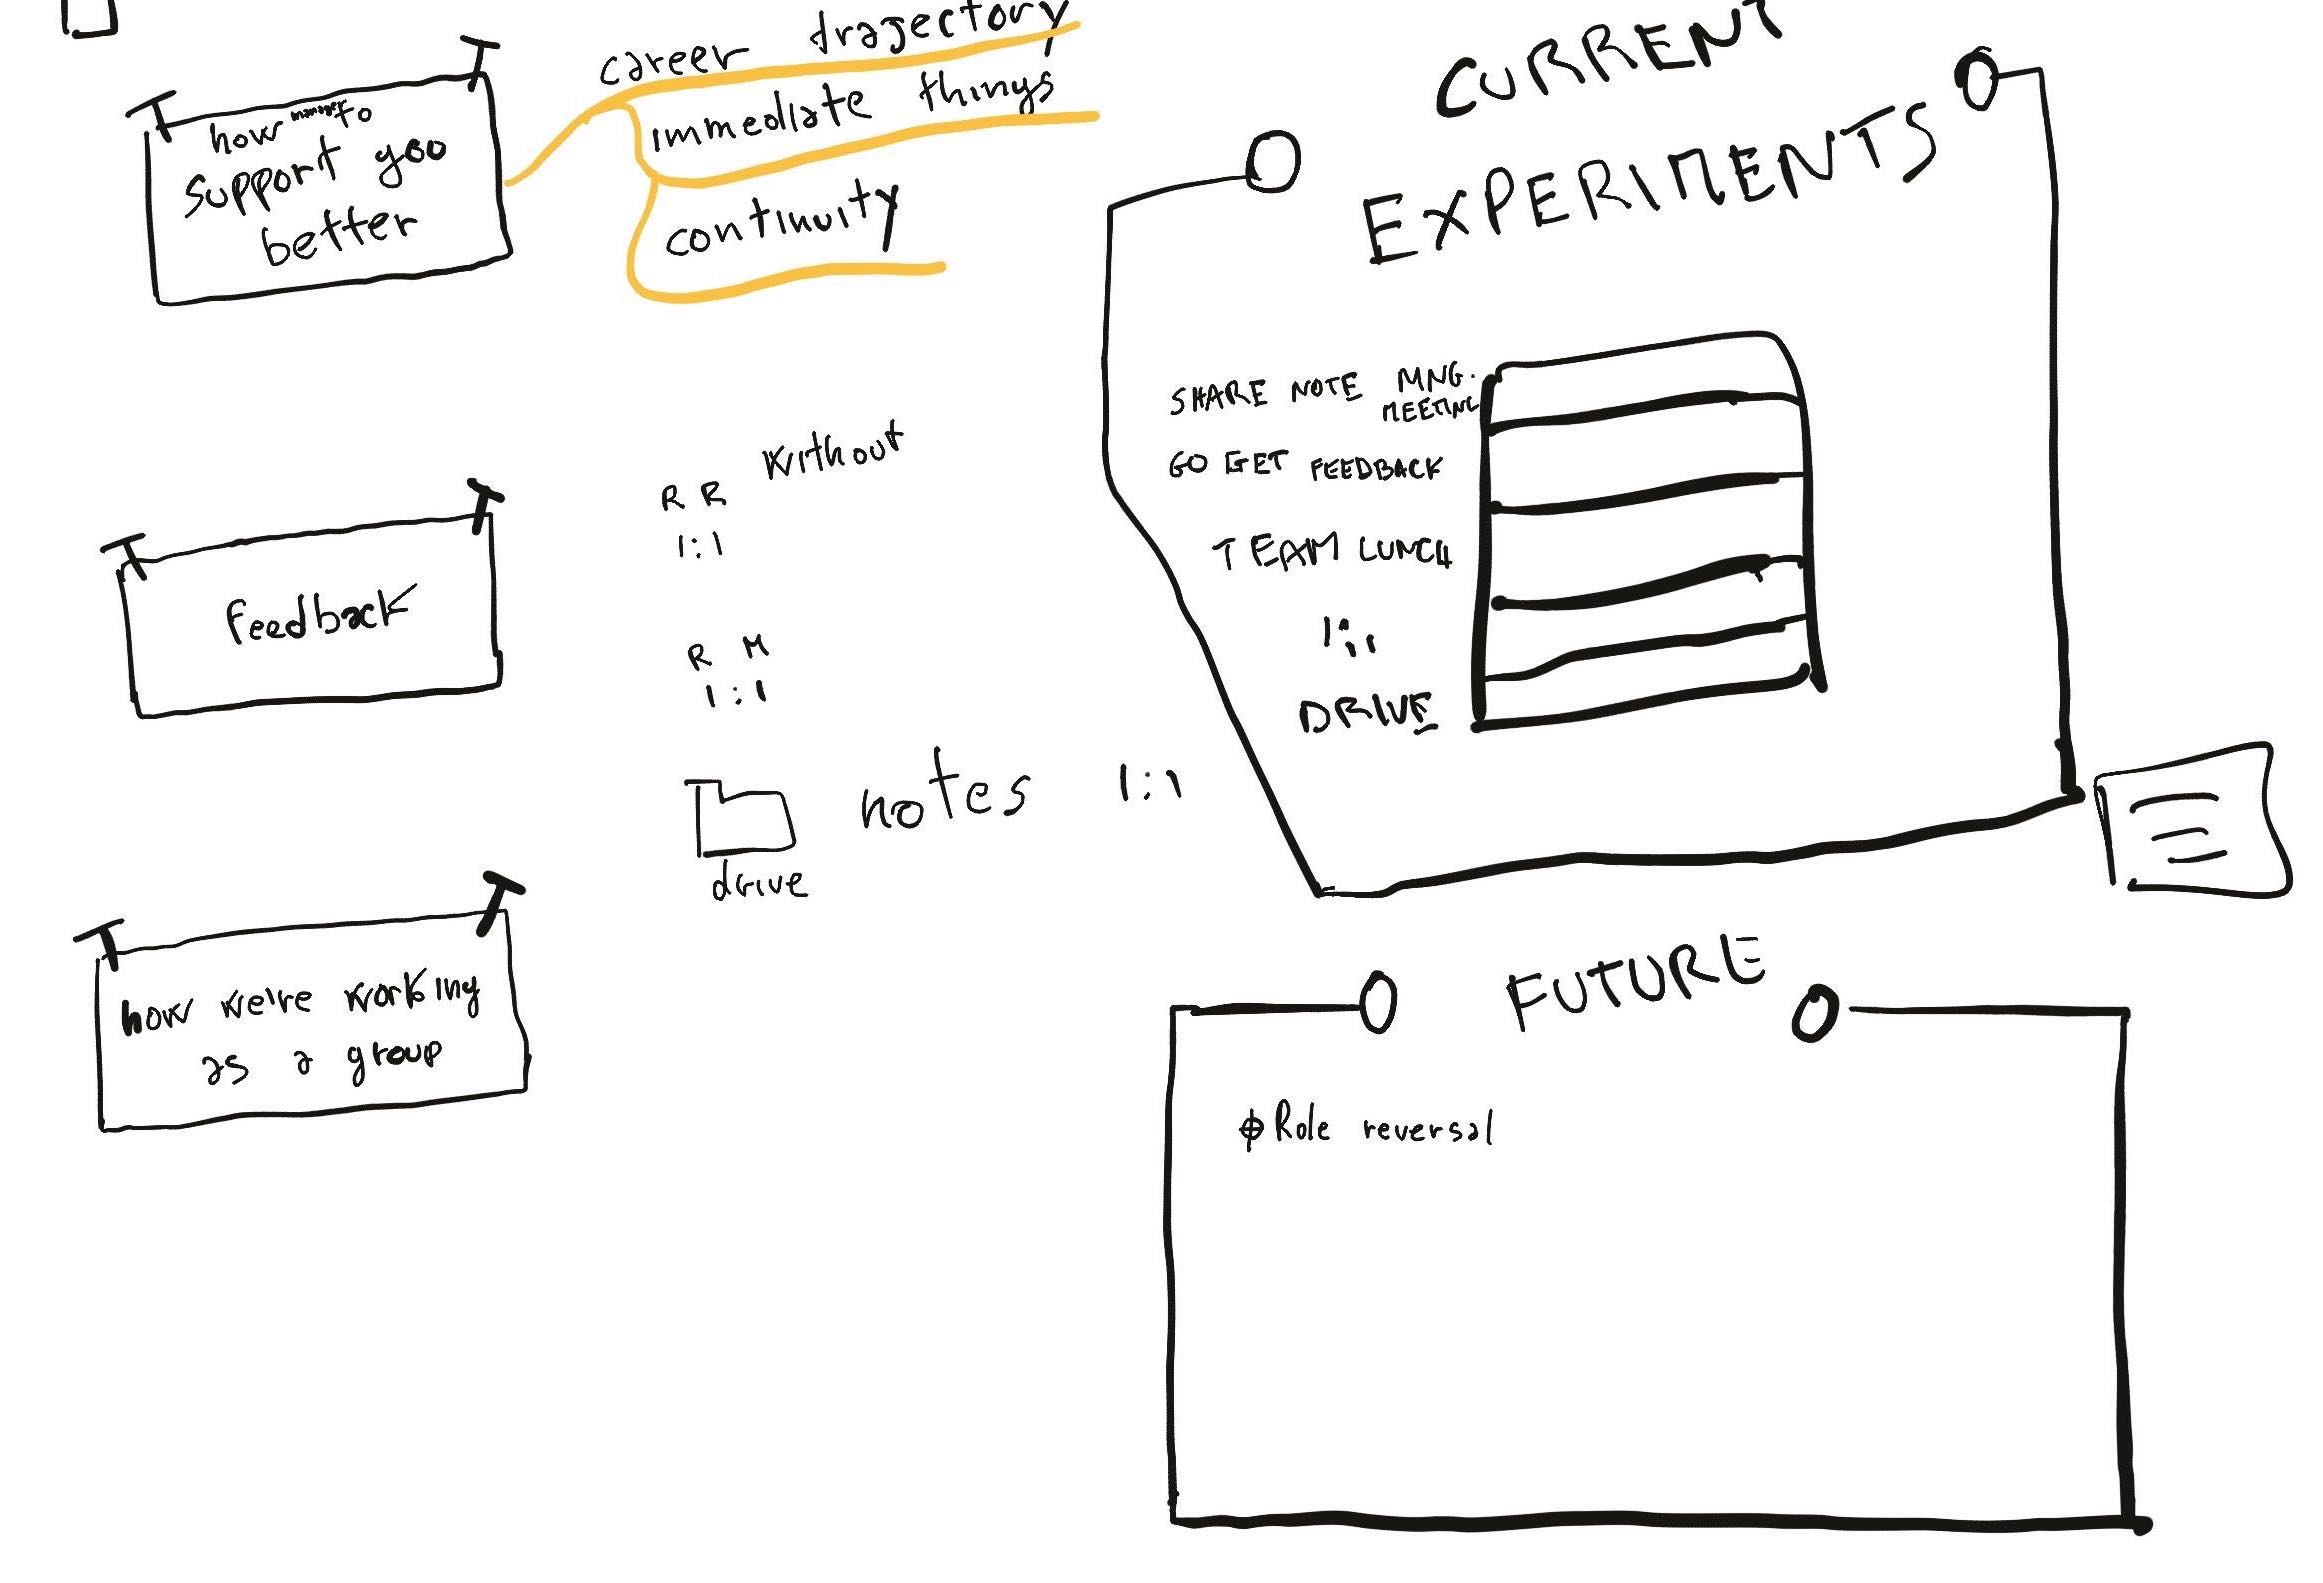 how manager to
support you
better
career trajectory
immediate things
continuity
feedback
R R without
1:1
R M
1:1
drive
notes 1:1
how we're working
as a group
CURRENT
EXPERIMENTS
SHARE NOTE MNG.
MEETING
GO GET FEEDBACK
TEAM LUNCH
1:1
DRIVE
FUTURE
Role reversal